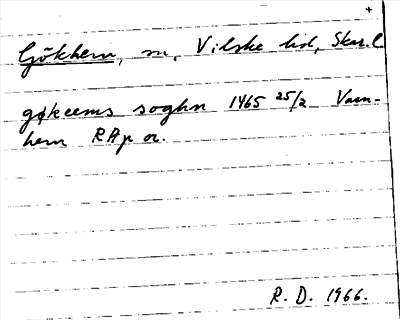 +
Gökhem, sn, Vilske hd, Skar. l.
gøkeems soghn 1465 25/2 Varn-
hem RAp or.
R. D. 1966.